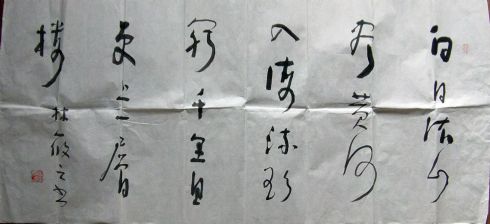 白日依山
尽黄河
入海流欲
穷千里目
更上一层
楼 林筱之书